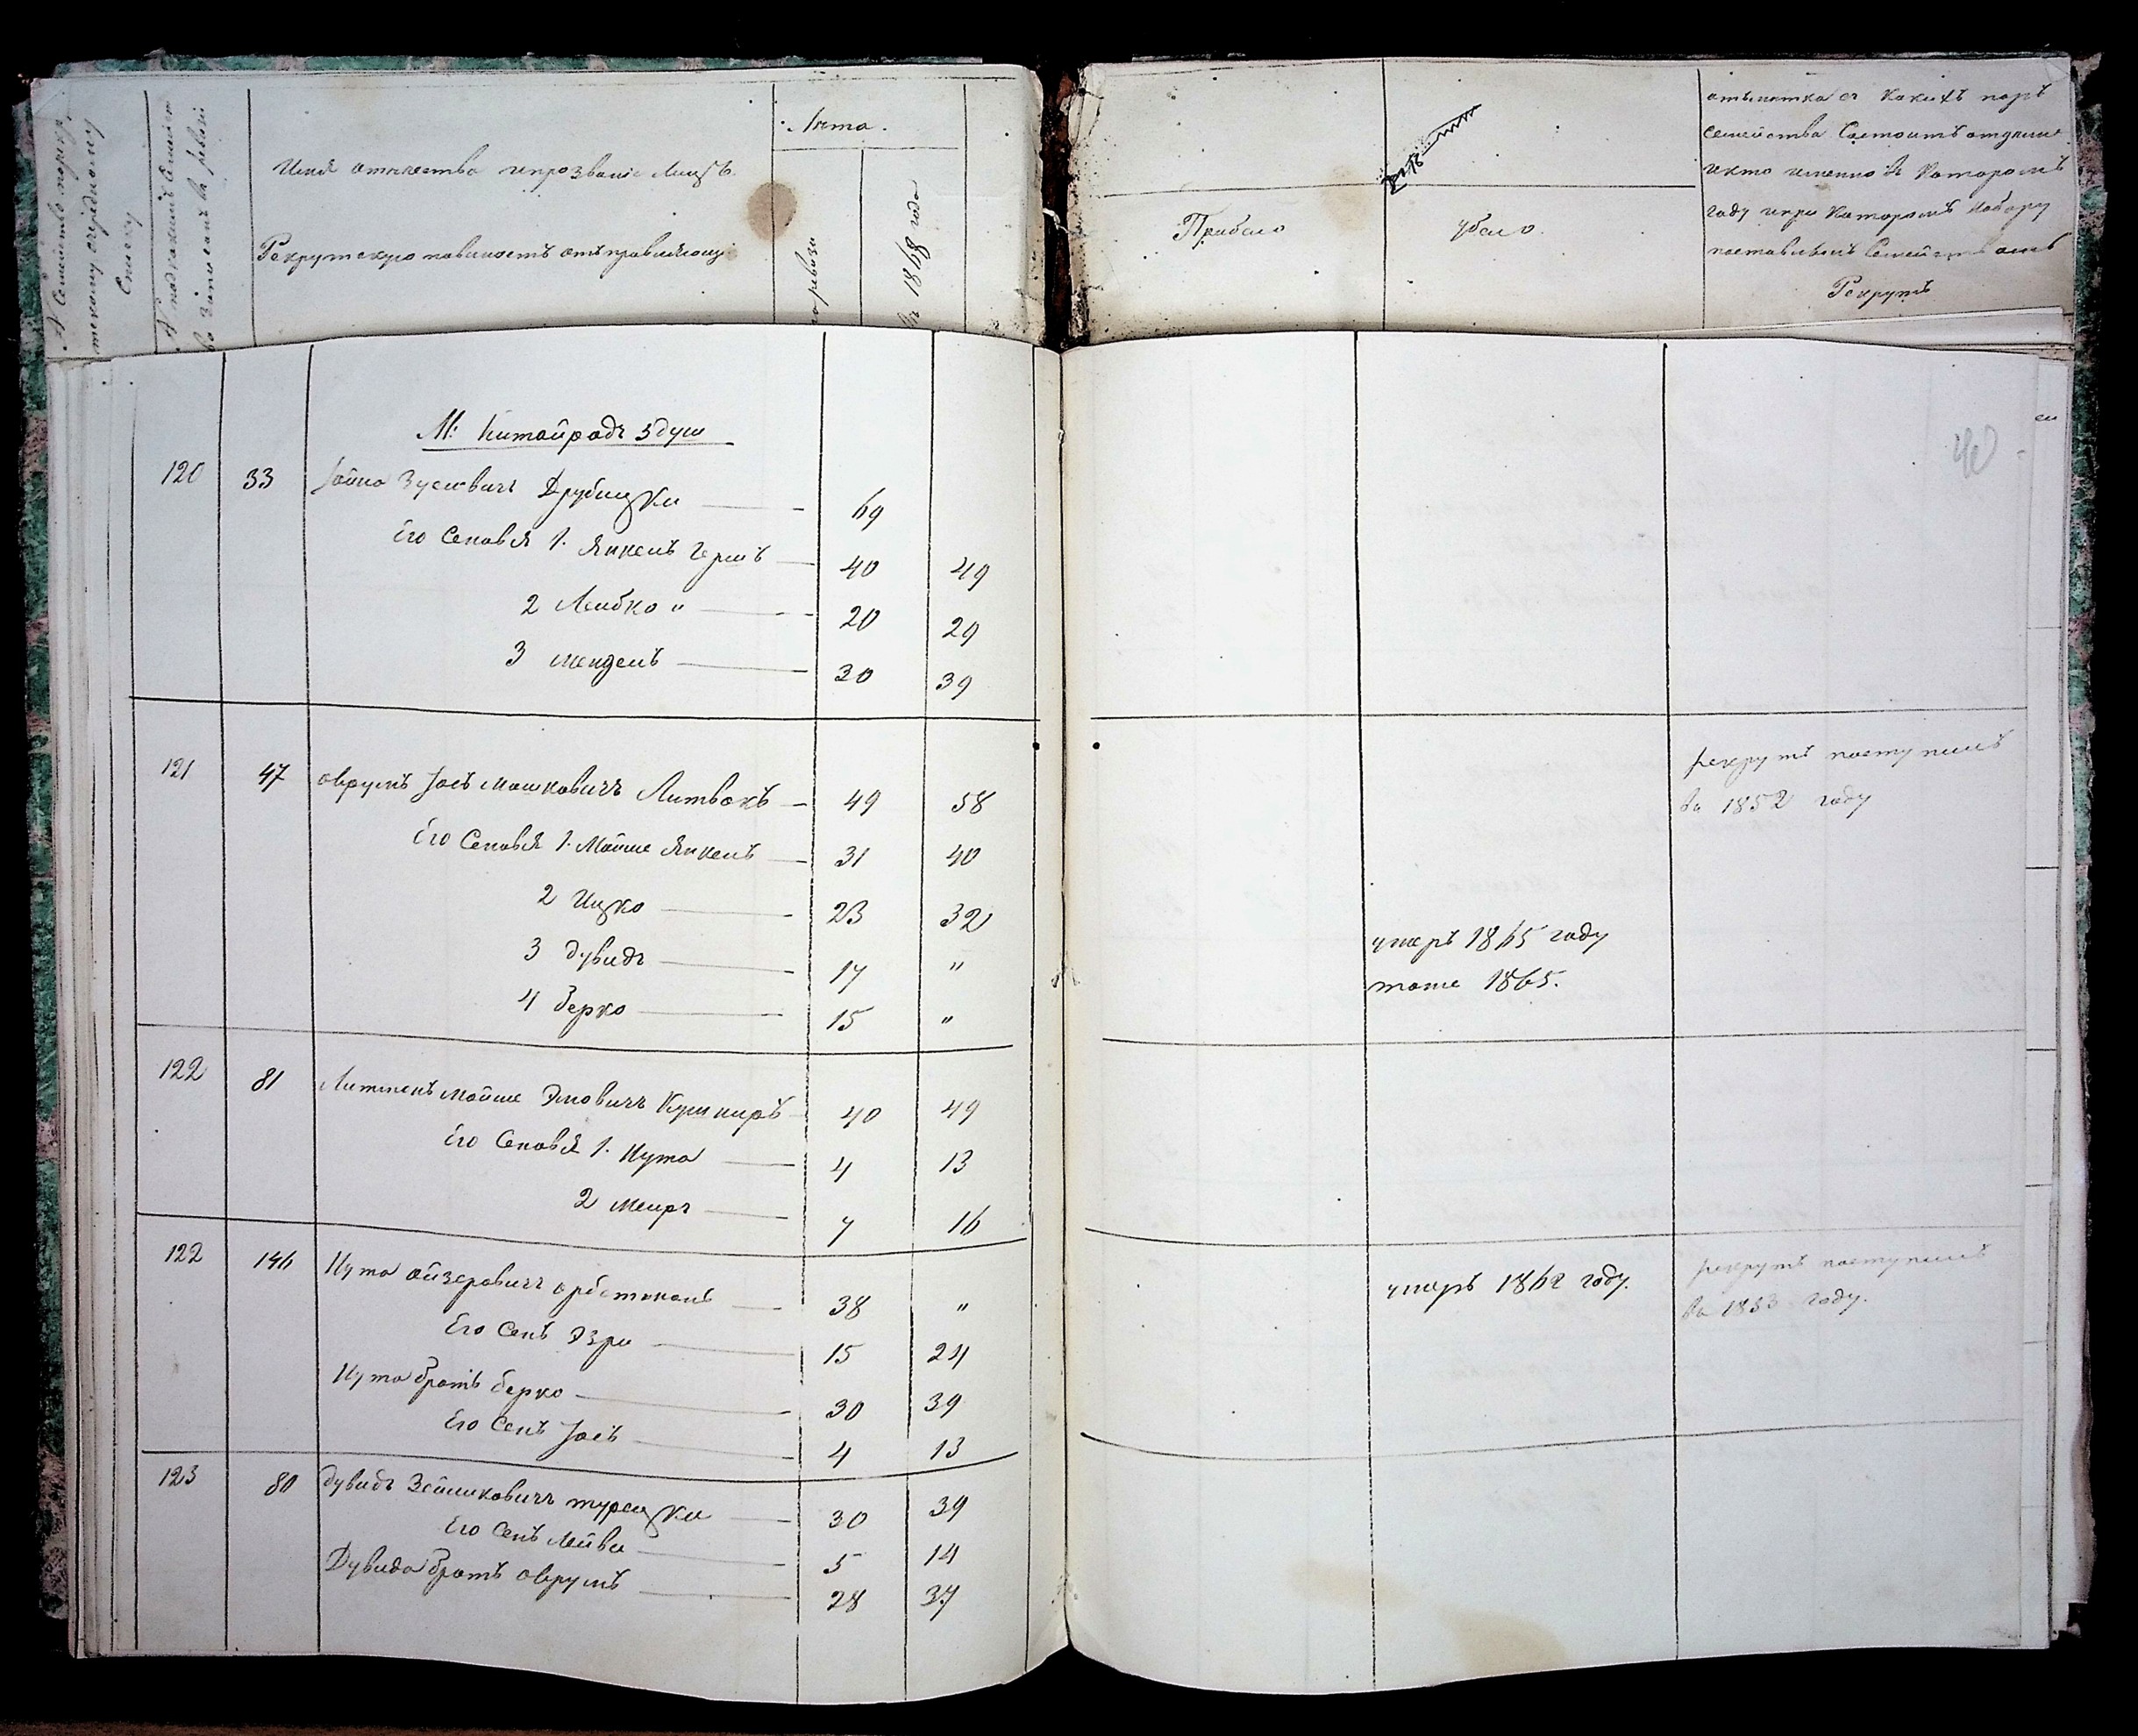 № Семейство порекр
тскому очередному
Списку
№ подкакимъ Семейст
во записанъ въ ревизіи
Имя отчество ипрозваніе Лицъ
Рекрутскую повиность отправляющ
Лета.
по ревизіи
въ 1868 году
Прибыло
убыло.
отъметка съ какихъ поръ
семейства Состоитъ отдельн
икто именно въ Которомъ
году ипри Которомъ Набору
поставленъ Семействомъ
Рекрутъ
М: Китайродъ 5 душ
40
120 33 Іойна Зусевичъ Друбицки 69
Его Сеновя 1. Янкель Герш 40 49
2 Лейбко " 20 29
3 Мендель 30 39
121 47 Оврумъ Іосъ Мошковичъ Литвокъ 49 58
рекрутъ поступилъ
въ 1852 году
Его Сеновя 1. Мойше Янкель 31 40
2 Ицко 23 32
3 Дувидъ 17 " умеръ 1865 году
4 Берко 15 " тоже 1865.
122 81 Мойше Кушниръ 40 49
Его Сеновя 1. Нута 4 13
2 Меиръ 7 16
122 146 Нута Ойзеровичъ 38 " умеръ 1862 году.
рекрутъ поступилъ
въ 1853 году.
Его Сенъ Эзри 15 24
Нута братъ Берко 30 39
Его Сенъ Іосъ 4 13
123 80 Дувидъ Зейликовичъ Турецки 30 39
Его Сенъ Лейви 5 14
Дувида братъ Оврумъ 28 37